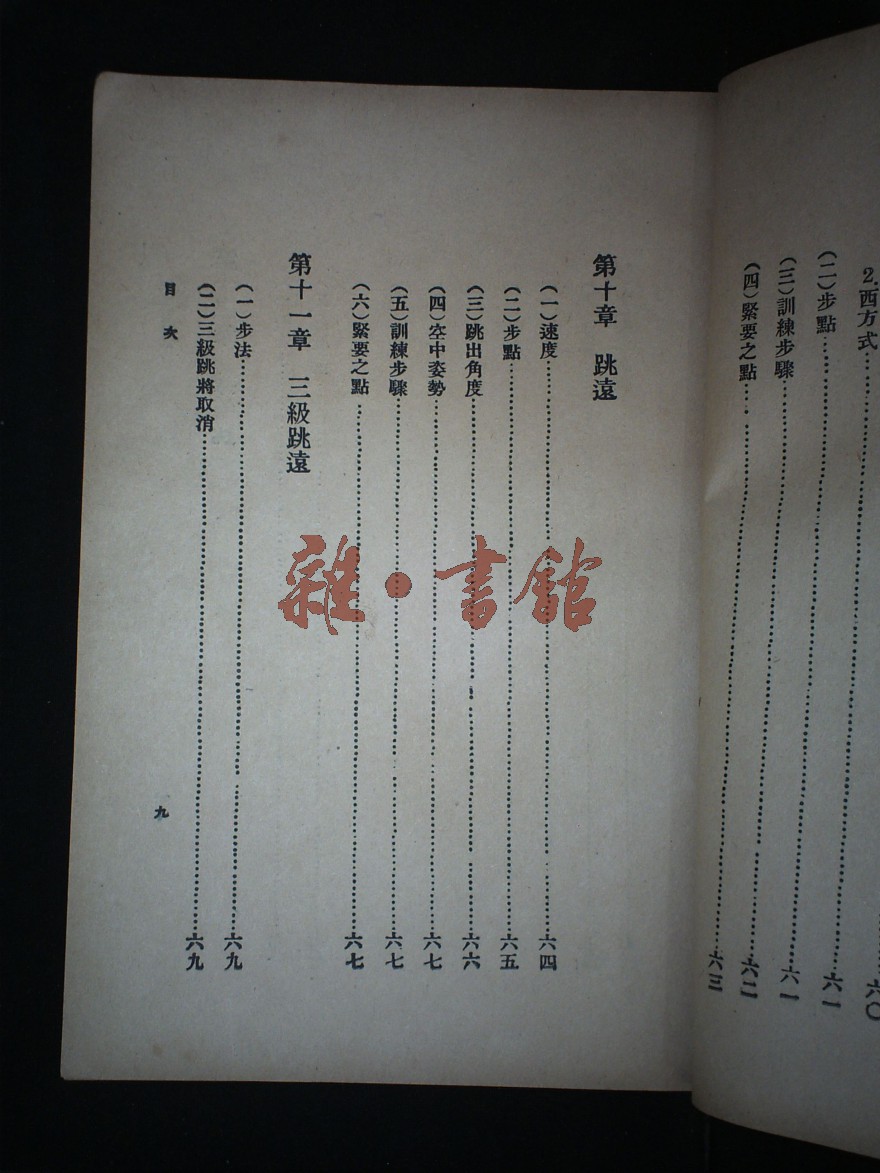 六〇
2.西方式……六一
(二)步點……六一
(三)訓練步驟……六二
(四)緊要之點……六三
第十章 跳遠
(一)速度……六四
(二)步點……六五
(三)跳出角度……六六
(四)空中姿勢……六七
(五)訓練步驟……六七
(六)緊要之點……六七
第十一章 三級跳遠
(一)步法……六九
(二)三級跳將取消……六九
目次 九
雜·書館